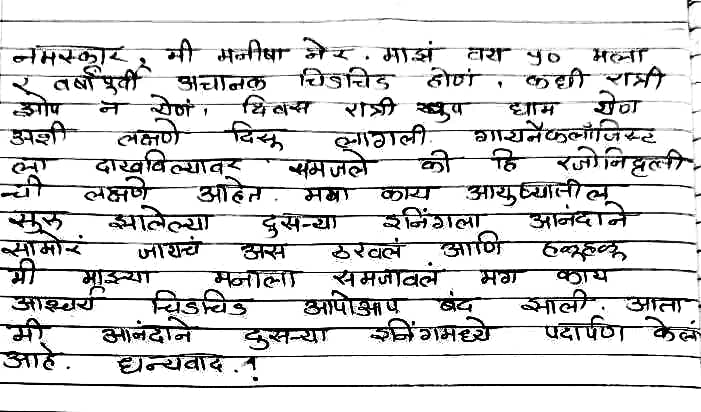 नमस्कार, मी मनीषा नेर. माझं वय ५० मला
२ वर्षांपूर्वी अचानक चिडचिड होणं, कधी रात्री
झोप न येणं, दिवस रात्री खुप घाम येण
अशी लक्षणे दिसू लागली. गायनॅकलॉजिस्ट
ला दाखविल्यावर समजले की हि रजोनिवृत्ती
ची लक्षणे आहेत. मग काय आयुष्यातील
सुरु झालेल्या दुसऱ्या इनिंगला आनंदाने
सामोरं जायचं अस ठरवलं आणि हळूहळू
मी माझ्या मनाला समजावलं मग काय
आश्चर्य चिडचिड आपोआप बंद झाली. आता
मी आनंदाने दुसऱ्या इनिंगमध्ये पदार्पण केलं
आहे. धन्यवाद.!